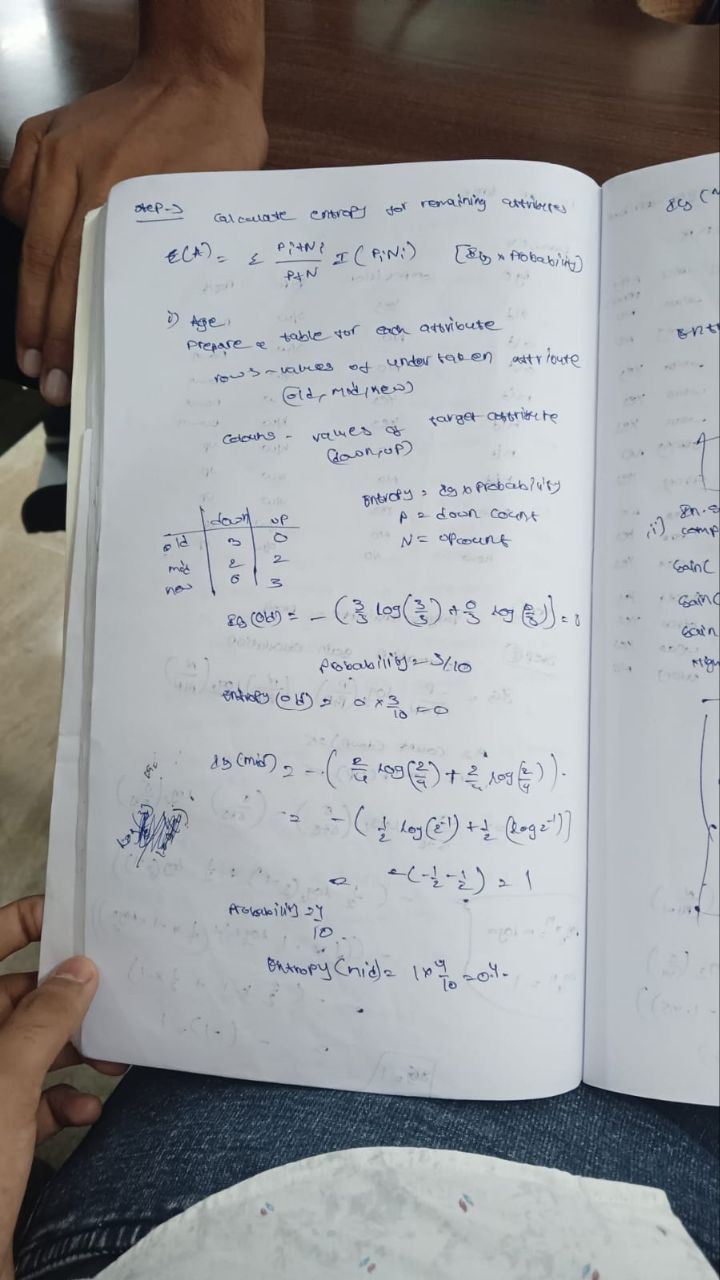 Step-> Calculate entropy for remaining attributes
E(A) = Σ Pi+Ni / P+N I(PiNi) [Ig x Probability]
i) Age
Prepare a table for each attribute
rows - values of under taken attribute
(old, mid, new)
Colouns - values of target attribute
(down, up)
Entropy = Ig x Probability
P = down count
N = up count
down up
old 3 0
mid 2 2
new 0 3
Ig (old) = - (3/3 log(3/3) + 0/3 log(0/3)] = 0
Probability = 3/10
Entropy (old) = 0 x 3/10 = 0
Ig (mid) = - (2/4 log(2/4) + 2/4 log(2/4)).
= - (1/2 log(2^-1) + 1/2 (log 2^-1)]
= -(-1/2 -1/2) = 1
Probability = 4/10.
Entropy (mid) = 1 x 4/10 = 0.4.
Ent
i) comp
Gain(
Gain(
Gain